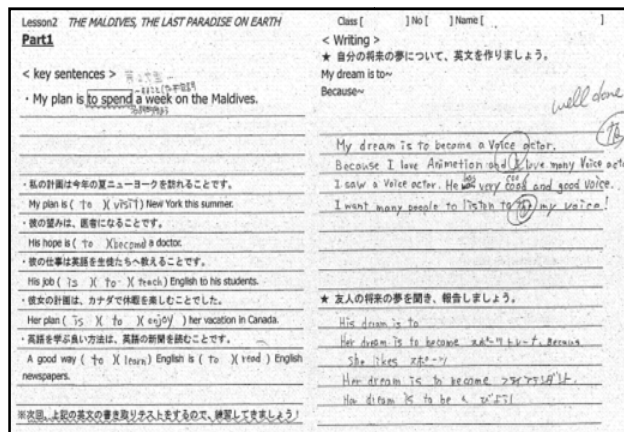 Lesson2 THE MALDIVES, THE LAST PARADISE ON EARTH
Part1
< key sentences >
・My plan is to spend a week on the Maldives.
・私の計画は今年の夏ニューヨークを訪れることです。
My plan is ( to )( visit ) New York this summer.
・彼の望みは、医者になることです。
His hope is ( to )(become) a doctor.
・彼の仕事は英語を生徒たちへ教えることです。
His job ( is )( to )( teach ) English to his students.
・彼女の計画は、カナダで休暇を楽しむことでした。
Her plan ( is )( to )( enjoy ) her vacation in Canada.
・英語を学ぶ良い方法は、英語の新聞を読むことです。
A good way ( to )( learn ) English is ( to )( read ) English
newspapers.
※次回、上記の英文の書き取りテストをするので、練習してきましょう!
Class [ ] No [ ] Name [ ]
< Writing >
★ 自分の将来の夢について、英文を作りましょう。
My dream is to~
Because~
well done
My dream is to become a Voice actor.
Because I love Animetion and I love many Voice acto
I saw a Voice actor. He was very cool and good voice.
I want many people to listen to my voice!
★ 友人の将来の夢を聞き、報告しましょう。
His dream is to
Her dream is to become スポーツトレーナ. Because
She likes スポーツ
Her dream is to become
Her dream is to be a